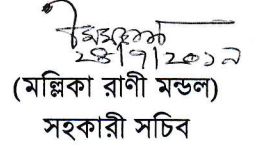 ২৪|৭|২০১৯
(মল্লিকা রাণী মন্ডল)
সহকারী সচিব